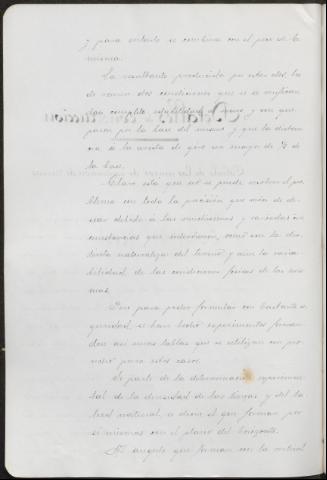 y para evitarlo se combina con el peso de la
misma.
La resultante producida por estas dos, ha
de reunir dos condiciones que si se verifican
dan completa estabilidad al muro y son que
pase por la base del mismo y que la distan
cia á la arista de giro sea mayor de 1/3 de
la base.
Claro está que no se puede resolver el pro
blema con toda la precisión que sería de de
sear debido á las muchisimas y variadas cir
cunstancias que intervienen, como son la dis
tinta naturaleza del terreno y aun la varia
bilidad de las condiciones físicas de los mis
mos.
Pero para poder formular con bastante se
guridad, se han hecho experimentos forman
do así unas tablas que se utilizan con pro
vecho para estos casos.
Se parte de la determinación experimen
tal de la densidad de las tierras y del ta
lud natural, es decir el que forman por
sí mismas con el plano del horizonte.
El ángulo que forman con la vertical